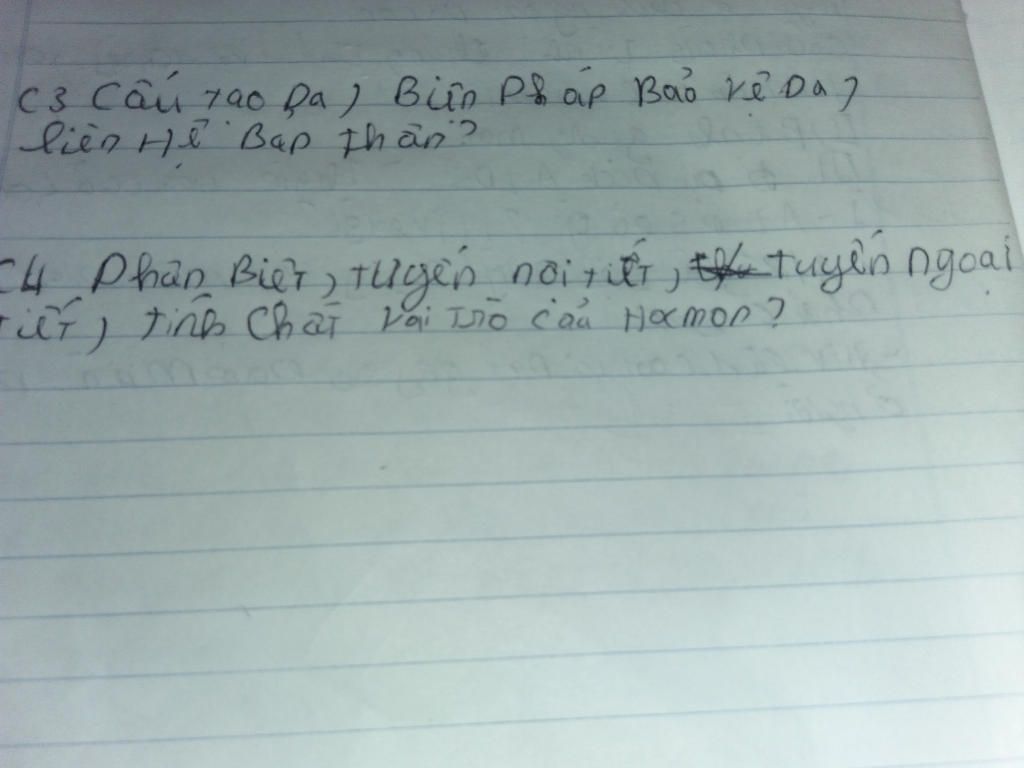 C3 Cấu tạo Da, Biện Pháp Bảo vệ Da,
liên Hệ Bản thân?
C4 Phân Biệt, tuyến nội tiết, tuyến ngoại
tiết, tính Chất vai trò của Hoocmon?